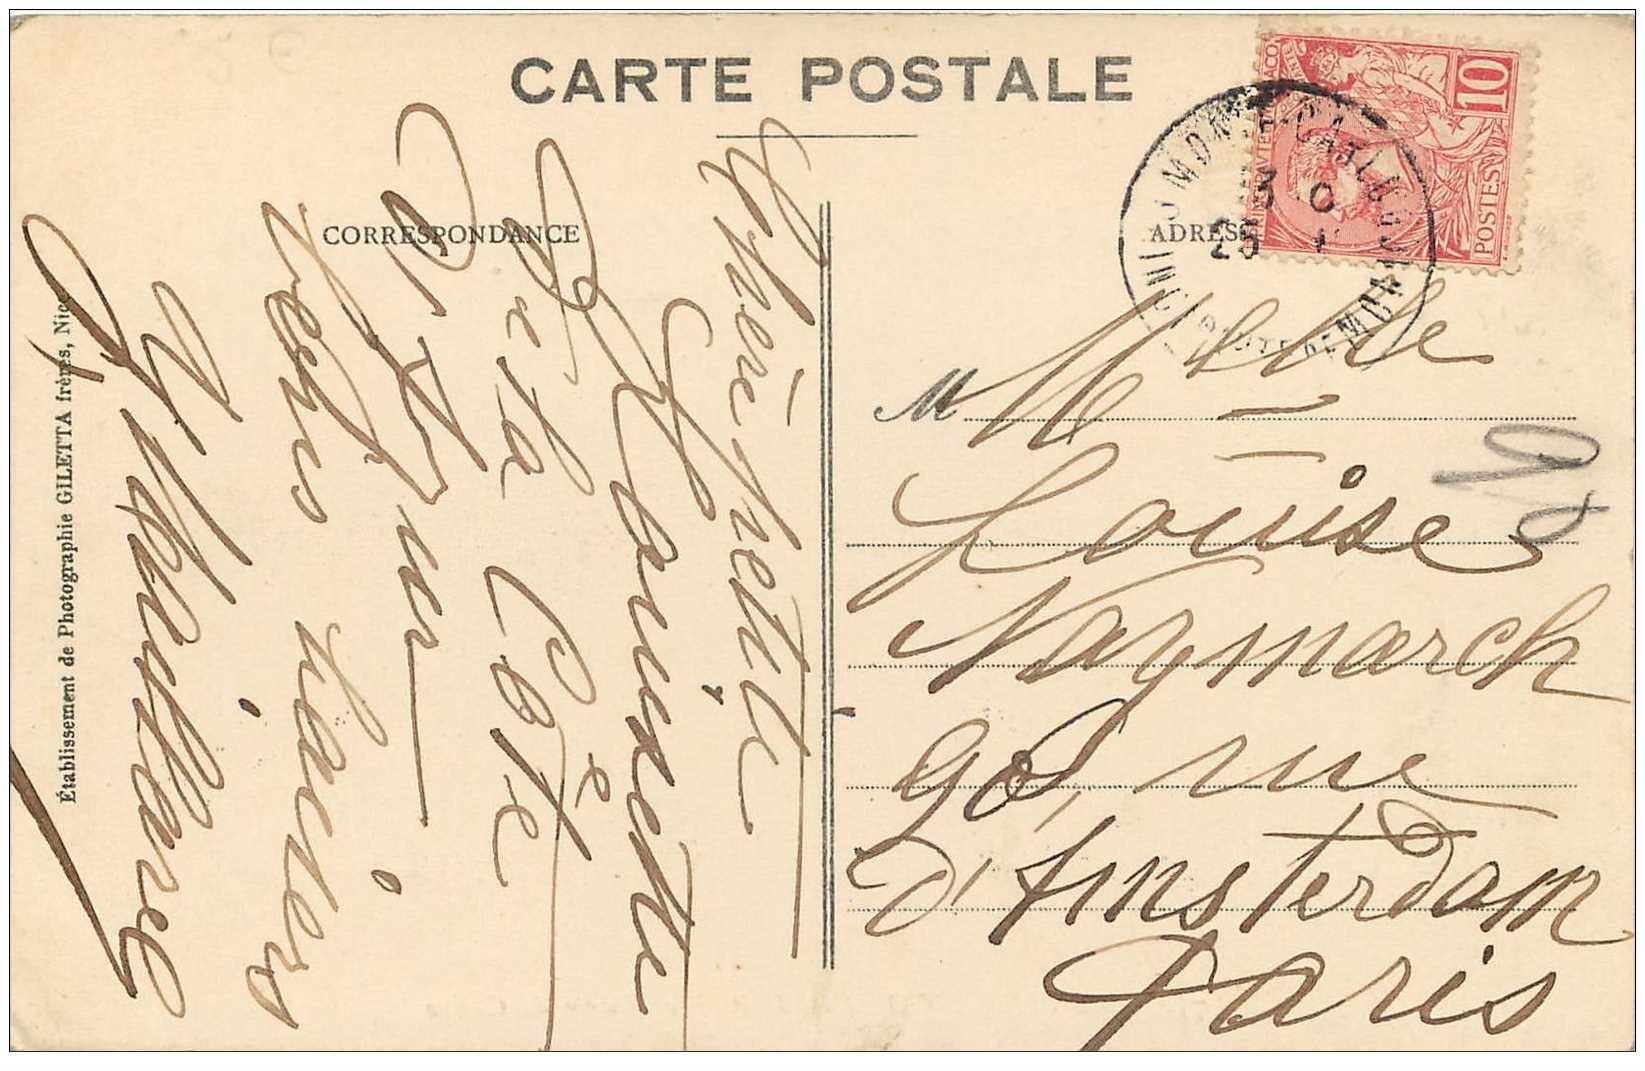 CARTE POSTALE
CORRESPONDANCE
ADRESSE
10
POSTES
MONTE-CARLO
25
M Melle
Louise
Naymarch
90, rue
d'Amsterdam
Paris
Chère petite
Louisette
De la Côte
d'Azur
bons baisers
Établissement de Photographie GILETTA frères, Nice